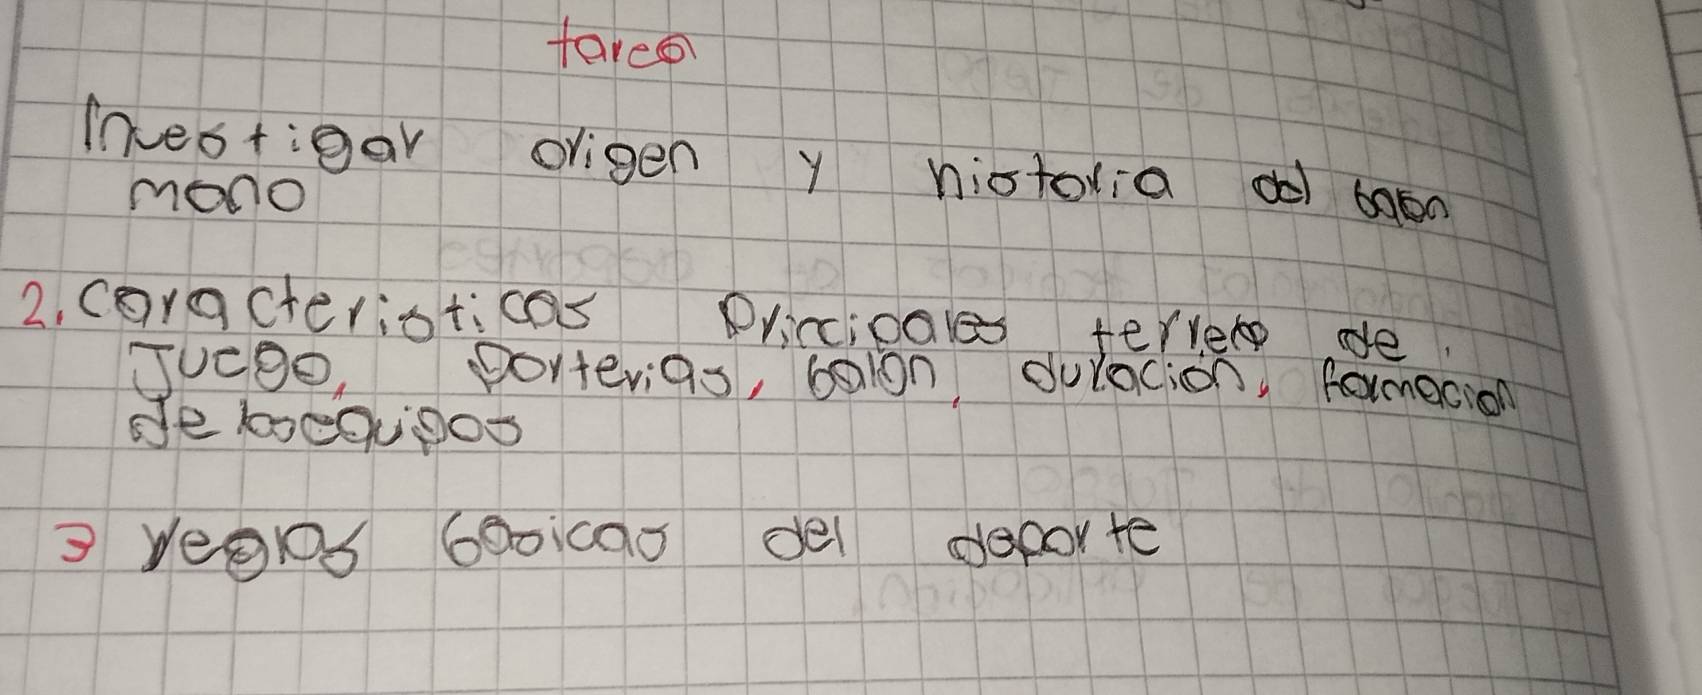 tarea
Investigar origen y historia del balon
mano
2. Caracteristicas Principales terreno de
Juego, porterias, balon, duracion, formacion
de los equipos
3 reglas basicas del deporte